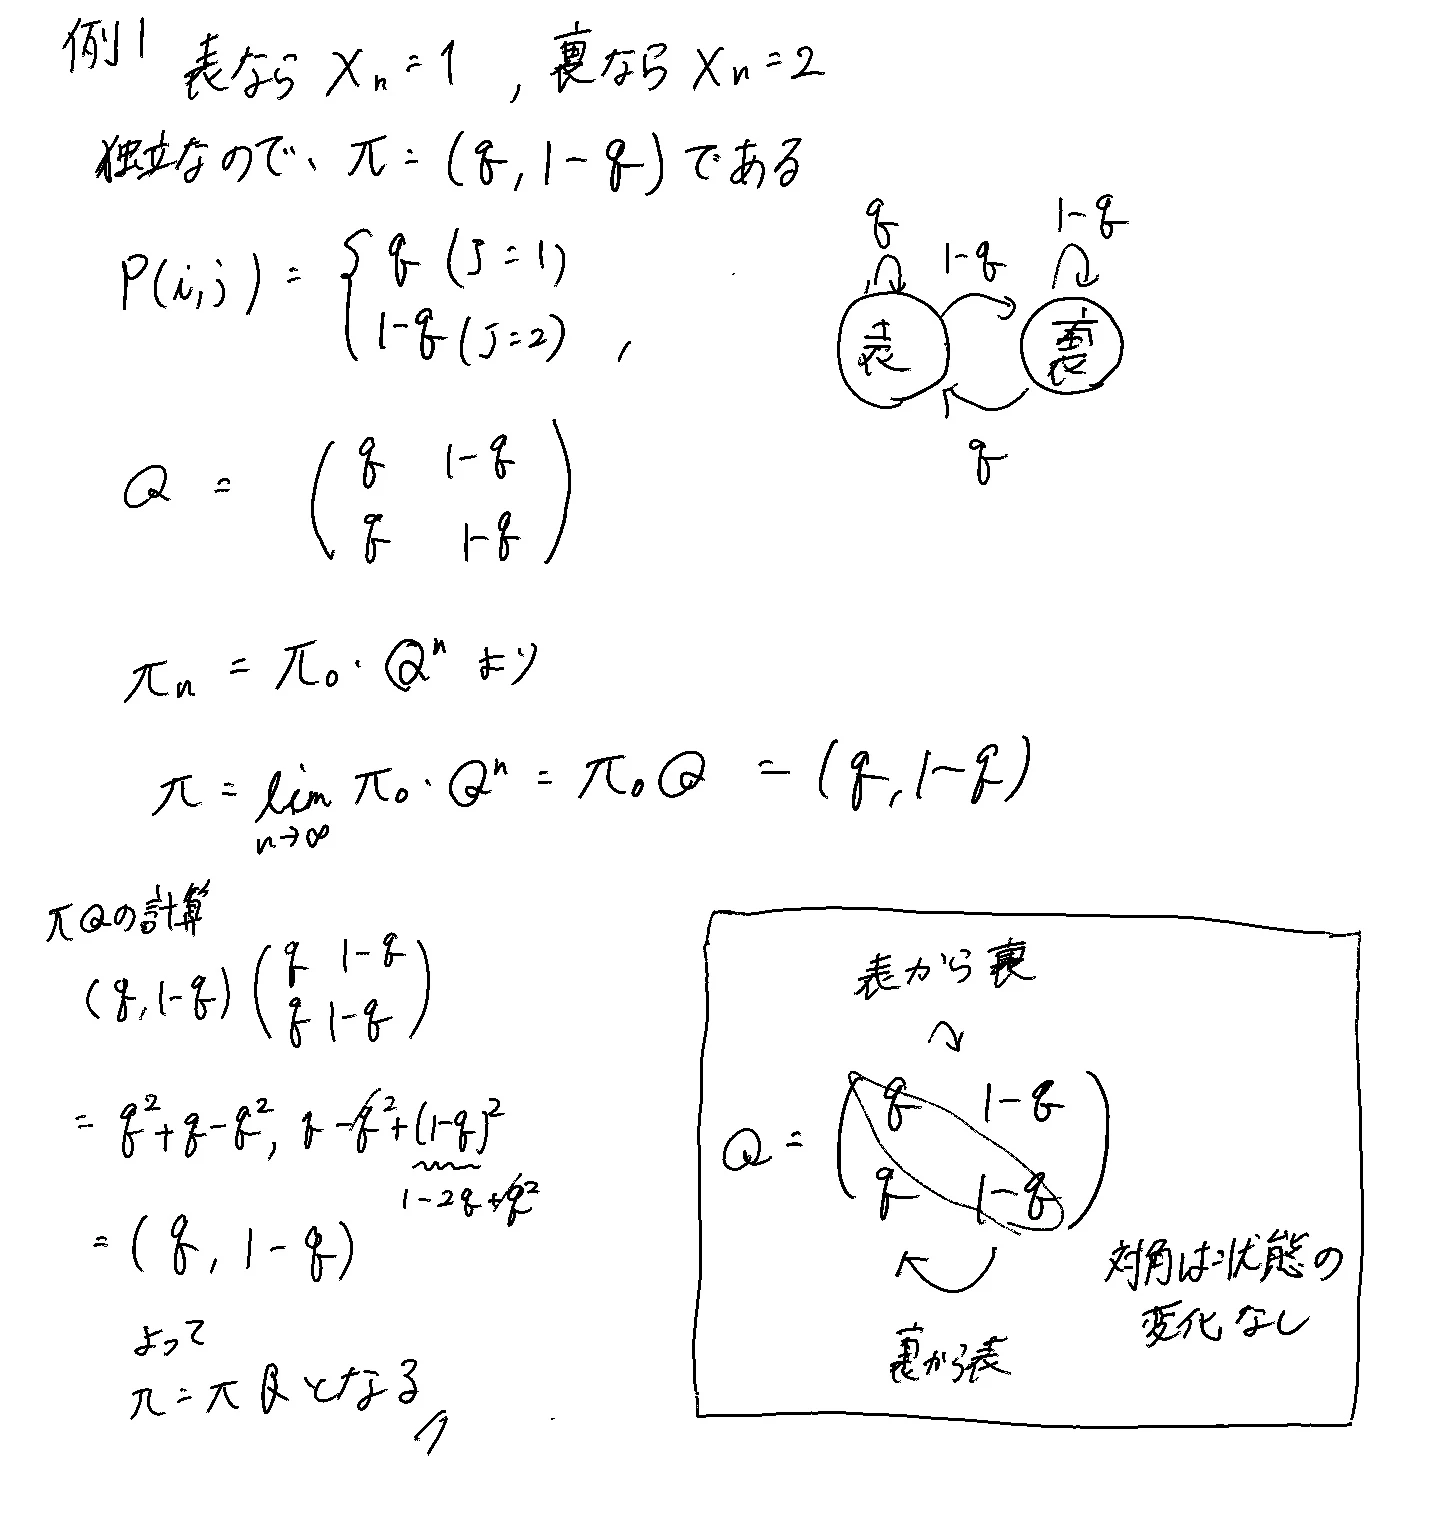 例1
表なら Xn = 1 , 裏なら Xn = 2
独立なので、 π = (q, 1-q) である
P(i,j) = { q (J=1)
1-q (J=2) ,
q
1-q
1-q
表
裏
q
Q = ( q 1-q
q 1-q )
πn = π0・Q^n より
π = lim n→∞ π0・Q^n = π0 Q = (q, 1-q)
πQの計算
(q, 1-q) ( q 1-q
q 1-q )
= q²+q-q², q-q²+(1-q)²
1-2q+q²
= (q, 1-q)
よって
π = πQ となる
表から裏
Q = ( q 1-q
q 1-q )
裏から表
対角は状態の
変化なし